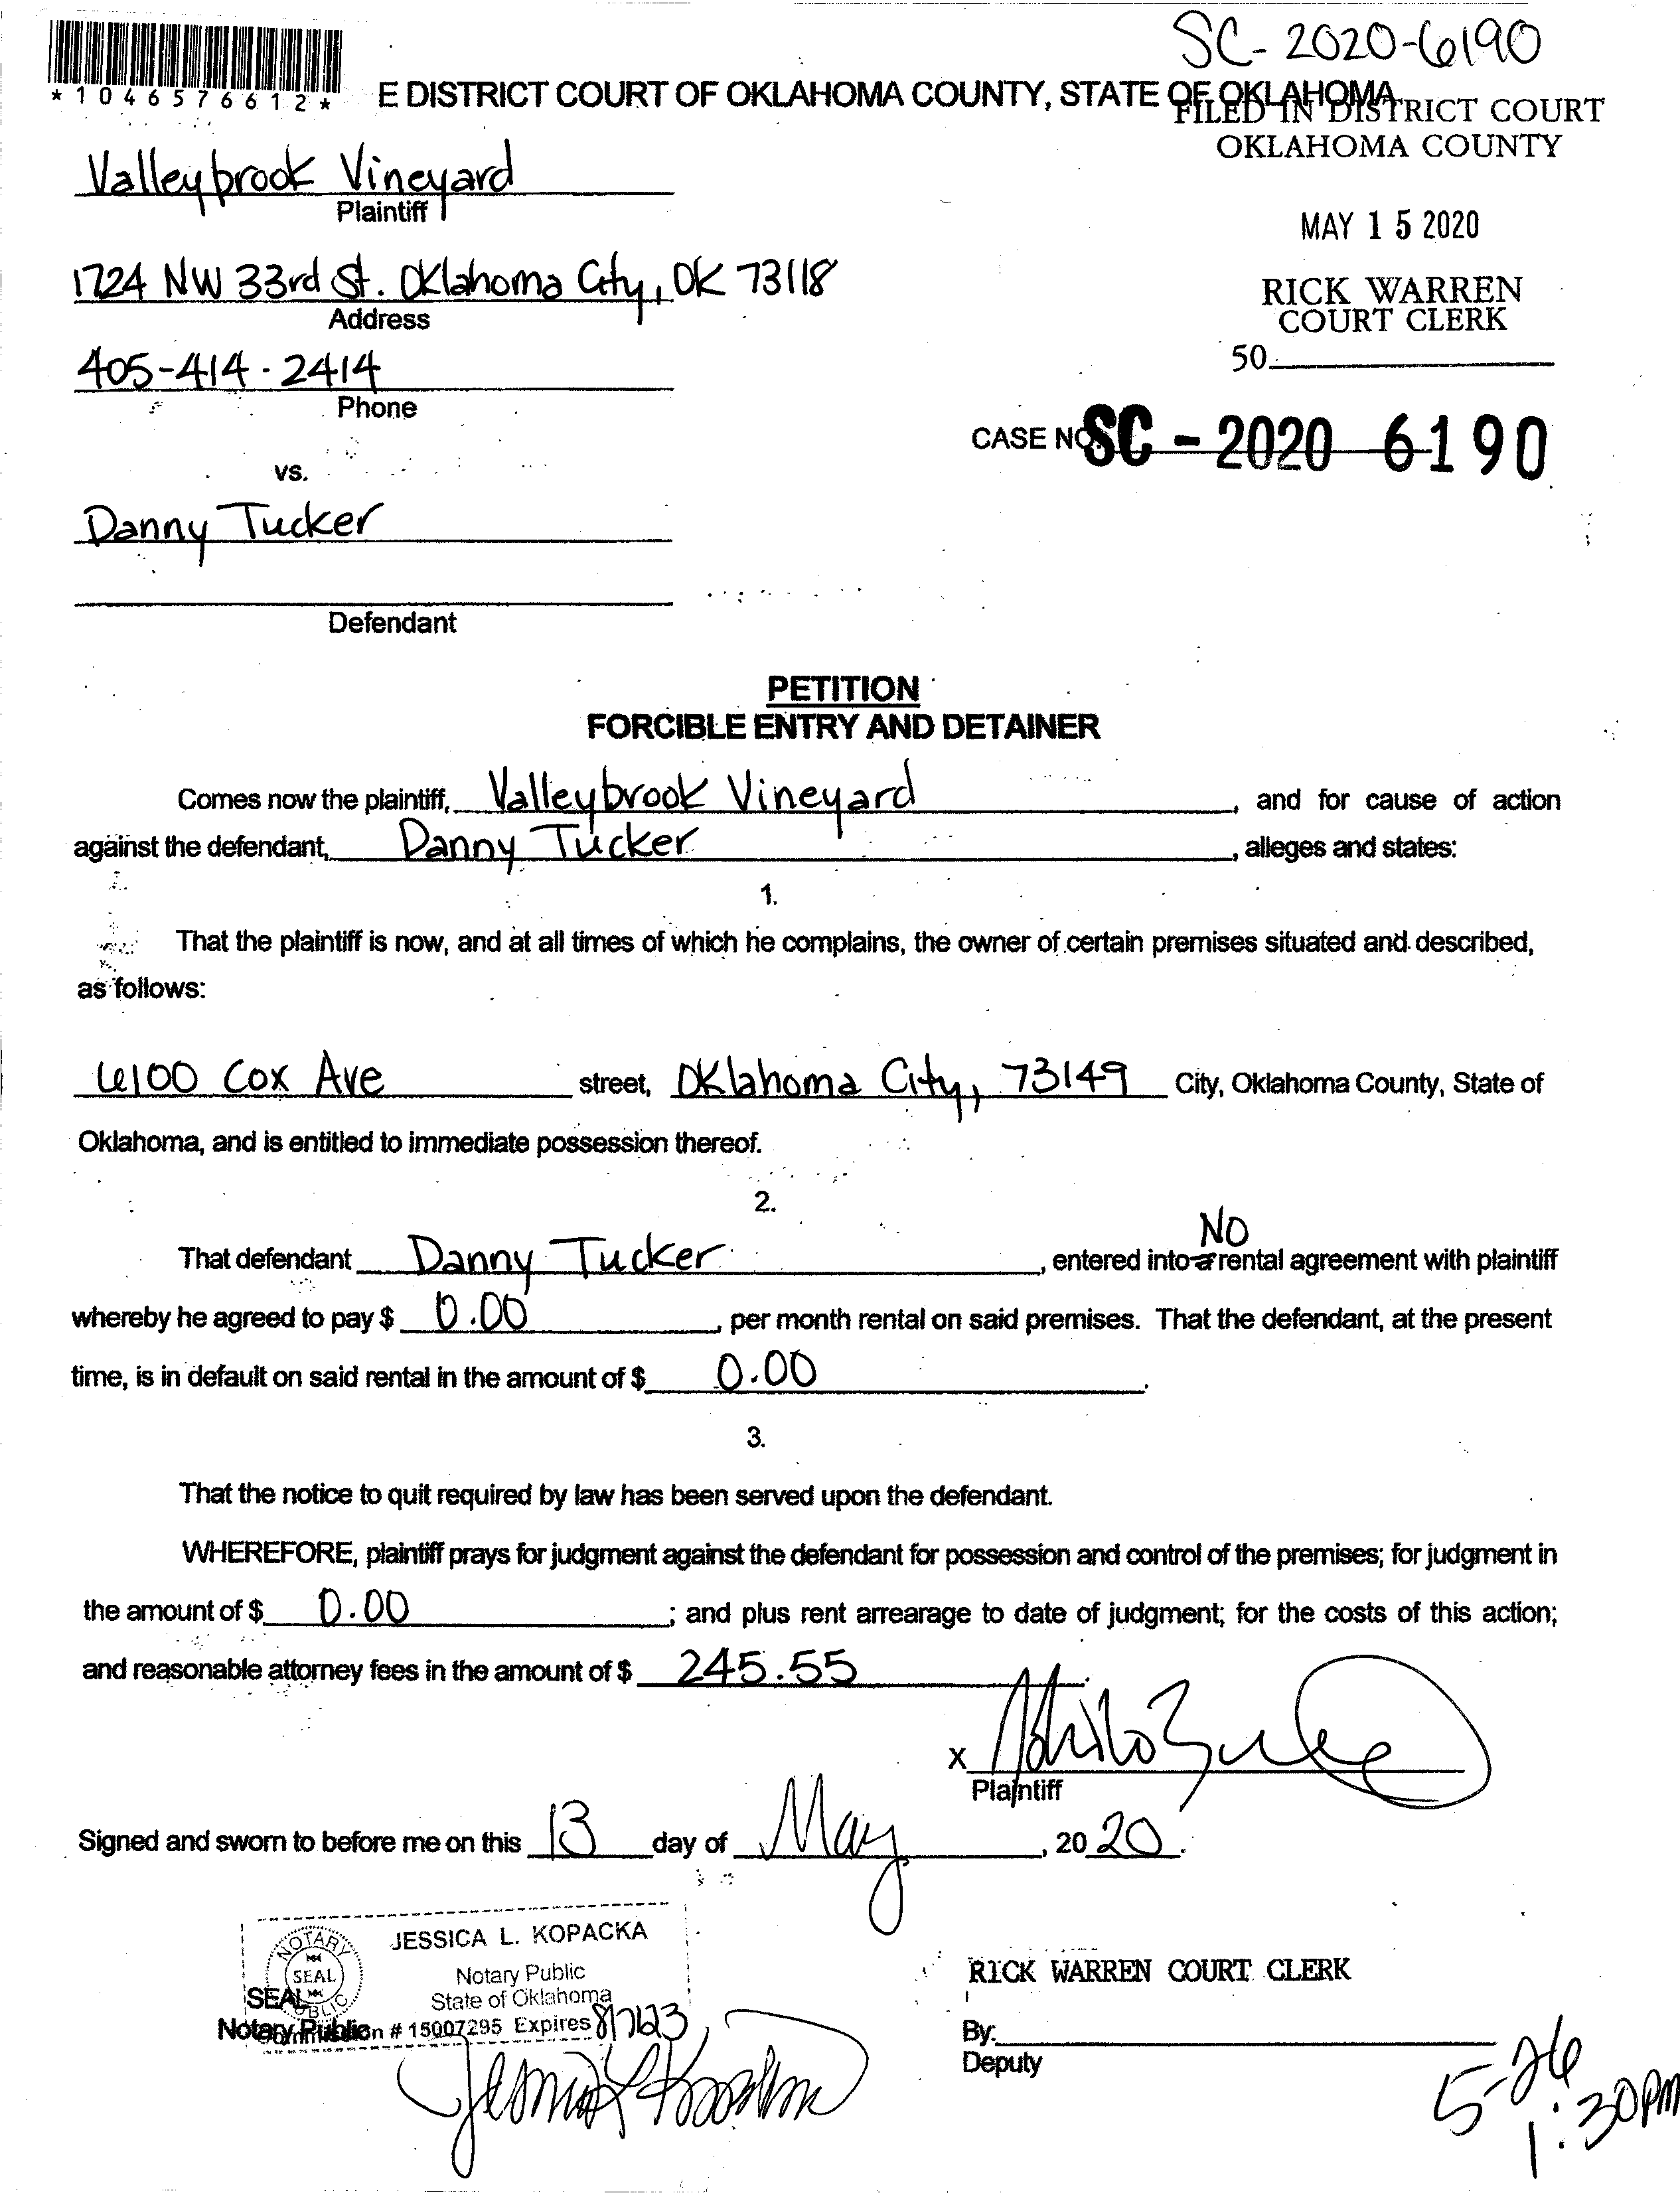 SC-2020-6190
*1046576612*
E DISTRICT COURT OF OKLAHOMA COUNTY, STATE OF OKLAHOMA
FILED IN DISTRICT COURT
OKLAHOMA COUNTY
Valleybrook Vineyard
Plaintiff
MAY 15 2020
1724 NW 33rd St. Oklahoma City, OK 73118
Address
RICK WARREN
COURT CLERK
405-414-2414
Phone
50
CASE NO. SC - 2020 6190
vs.
Danny Tucker
Defendant
PETITION
FORCIBLE ENTRY AND DETAINER
Comes now the plaintiff, Valleybrook Vineyard, and for cause of action
against the defendant, Danny Tucker, alleges and states:
1.
That the plaintiff is now, and at all times of which he complains, the owner of certain premises situated and described,
as follows:
6100 Cox Ave street, Oklahoma City, 73149 City, Oklahoma County, State of
Oklahoma, and is entitled to immediate possession thereof.
2.
NO
That defendant Danny Tucker, entered into a rental agreement with plaintiff
whereby he agreed to pay $ 0.00, per month rental on said premises. That the defendant, at the present
time, is in default on said rental in the amount of $ 0.00.
3.
That the notice to quit required by law has been served upon the defendant.
WHEREFORE, plaintiff prays for judgment against the defendant for possession and control of the premises; for judgment in
the amount of $ 0.00; and plus rent arrearage to date of judgment; for the costs of this action;
and reasonable attorney fees in the amount of $ 245.55.
X
Plaintiff
Signed and sworn to before me on this 13 day of May, 2020.
NOTARY
SEAL
PUBLIC
JESSICA L. KOPACKA
Notary Public
State of Oklahoma
SEAL
Commission # 15007295 Expires 8/7/23
Notary Public
RICK WARREN COURT CLERK
By:
Deputy
5-26
1:30PM